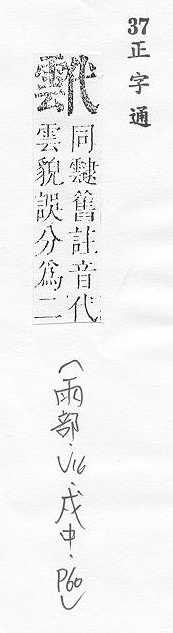 37 正字通
同舊註音代
雲貌誤分爲二
(雨部、V16、戌中、P60)